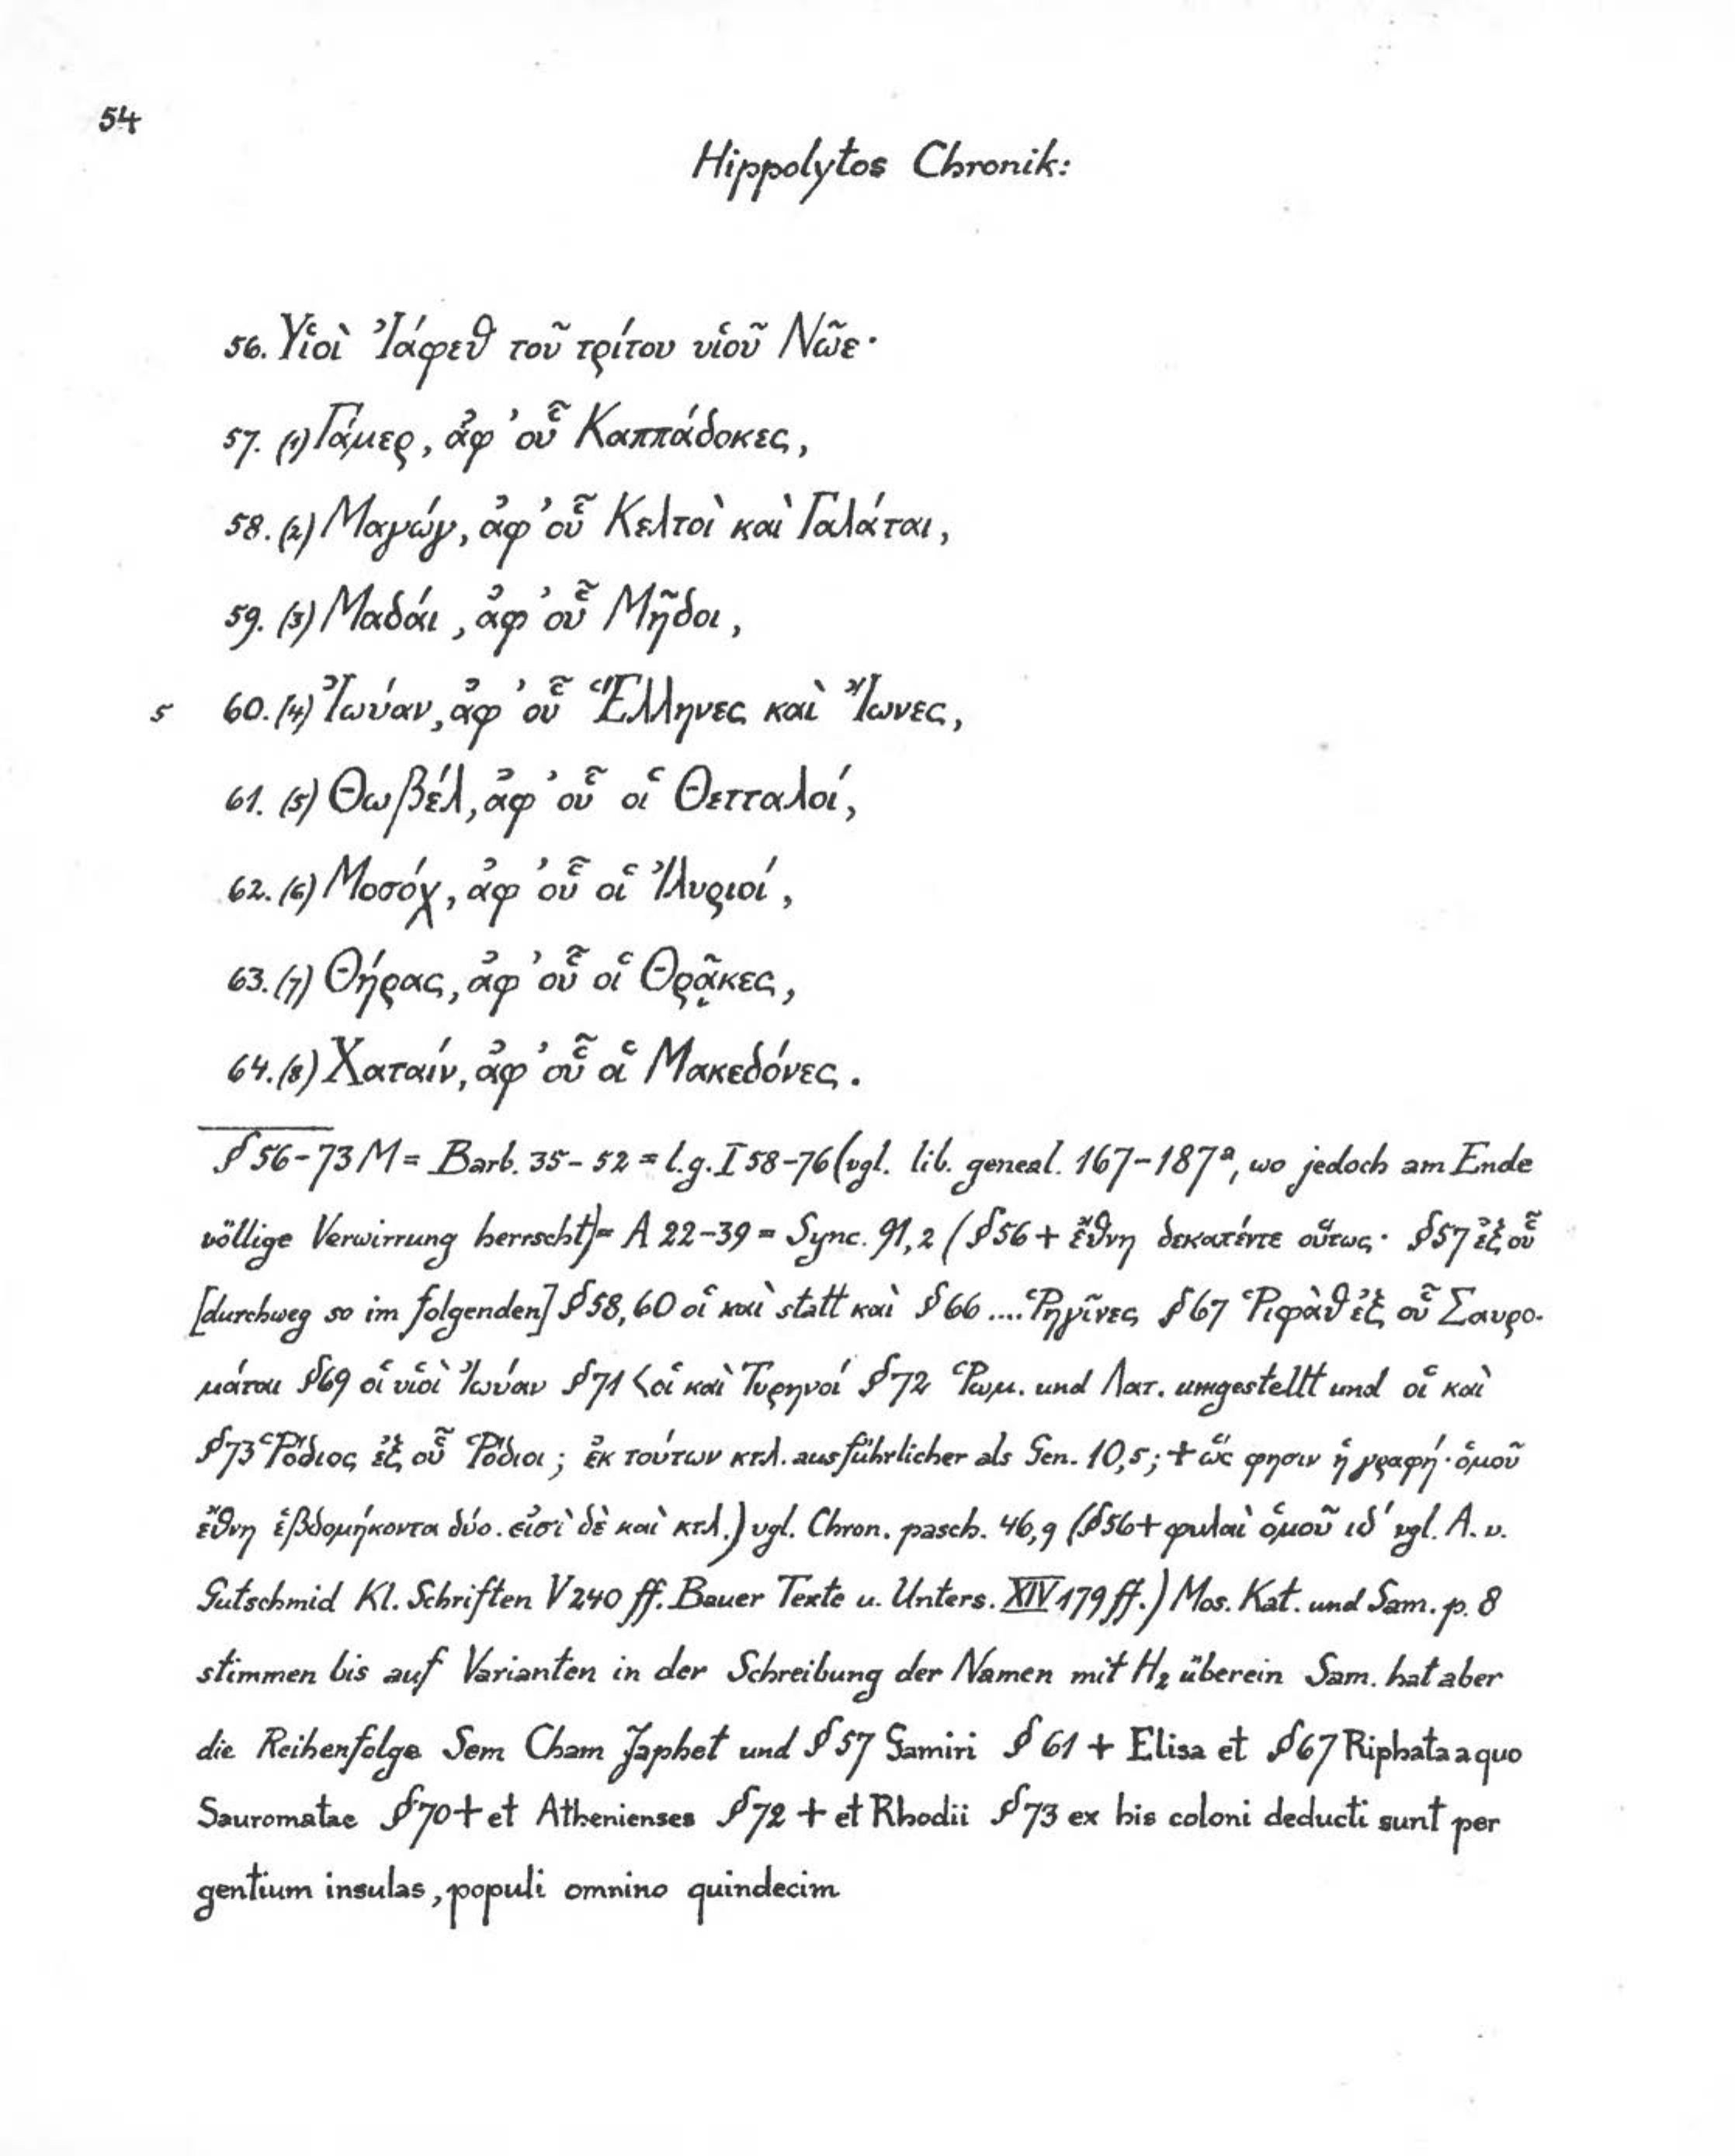 54
Hippolytos Chronik:
56. Υἱοὶ Ἰάφεθ τοῦ τρίτου υἱοῦ Νῶε·
57. (1) Γάμερ, ἀφ' οὗ Καππάδοκες,
58. (2) Μαγώγ, ἀφ' οὗ Κελτοὶ καὶ Γαλάται,
59. (3) Μαδάι, ἀφ' οὗ Μῆδοι,
5 60. (4) Ἰωύαν, ἀφ' οὗ Ἕλληνες καὶ Ἴωνες,
61. (5) Θωβέλ, ἀφ' οὗ οἱ Θετταλοί,
62. (6) Μοσόχ, ἀφ' οὗ οἱ Ἰλυριοί,
63. (7) Θήρας, ἀφ' οὗ οἱ Θρᾷκες,
64. (8) Χαταίν, ἀφ' οὗ οἱ Μακεδόνες.
§ 56-73 M = Barb. 35-52 = l.g. I 58-76 (vgl. lib. geneal. 167-187ª, wo jedoch am Ende
völlige Verwirrung herrscht) = A 22-39 = Sync. 91,2 (§56 + ἔθνη δεκαπέντε οὕτως· §57 ἐξ οὗ
[durchweg so im folgenden] §58,60 οἱ καὶ statt καὶ §66 .... Ῥηγῖνες §67 Ῥιφὰθ ἐξ οὗ Σαυρο-
μάται §69 οἱ υἱοὶ Ἰωύαν §71 < οἱ καὶ Τυρηνοί §72 Ῥωμ. und Λατ. umgestellt und οἱ καὶ
§73 Ῥόδιος ἐξ οὗ Ῥόδιοι; ἐκ τούτων κτλ. ausführlicher als Gen. 10,5; + ὥς φησιν ἡ γραφή· ὁμοῦ
ἔθνη ἑβδομήκοντα δύο. εἰσὶ δὲ καὶ κτλ.) vgl. Chron. pasch. 46,9 (§56 + φυλαὶ ὁμοῦ ιδ' vgl. A. v.
Gutschmid Kl. Schriften V 240 ff. Bauer Texte u. Unters. XIV 179 ff.) Mos. Kat. und Sam. p. 8
stimmen bis auf Varianten in der Schreibung der Namen mit H₂ überein Sam. hat aber
die Reihenfolge Sem Cham Japhet und §57 Gamiri §61 + Elisa et §67 Riphata a quo
Sauromatae §70 + et Athenienses §72 + et Rhodii §73 ex his coloni deducti sunt per
gentium insulas, populi omnino quindecim